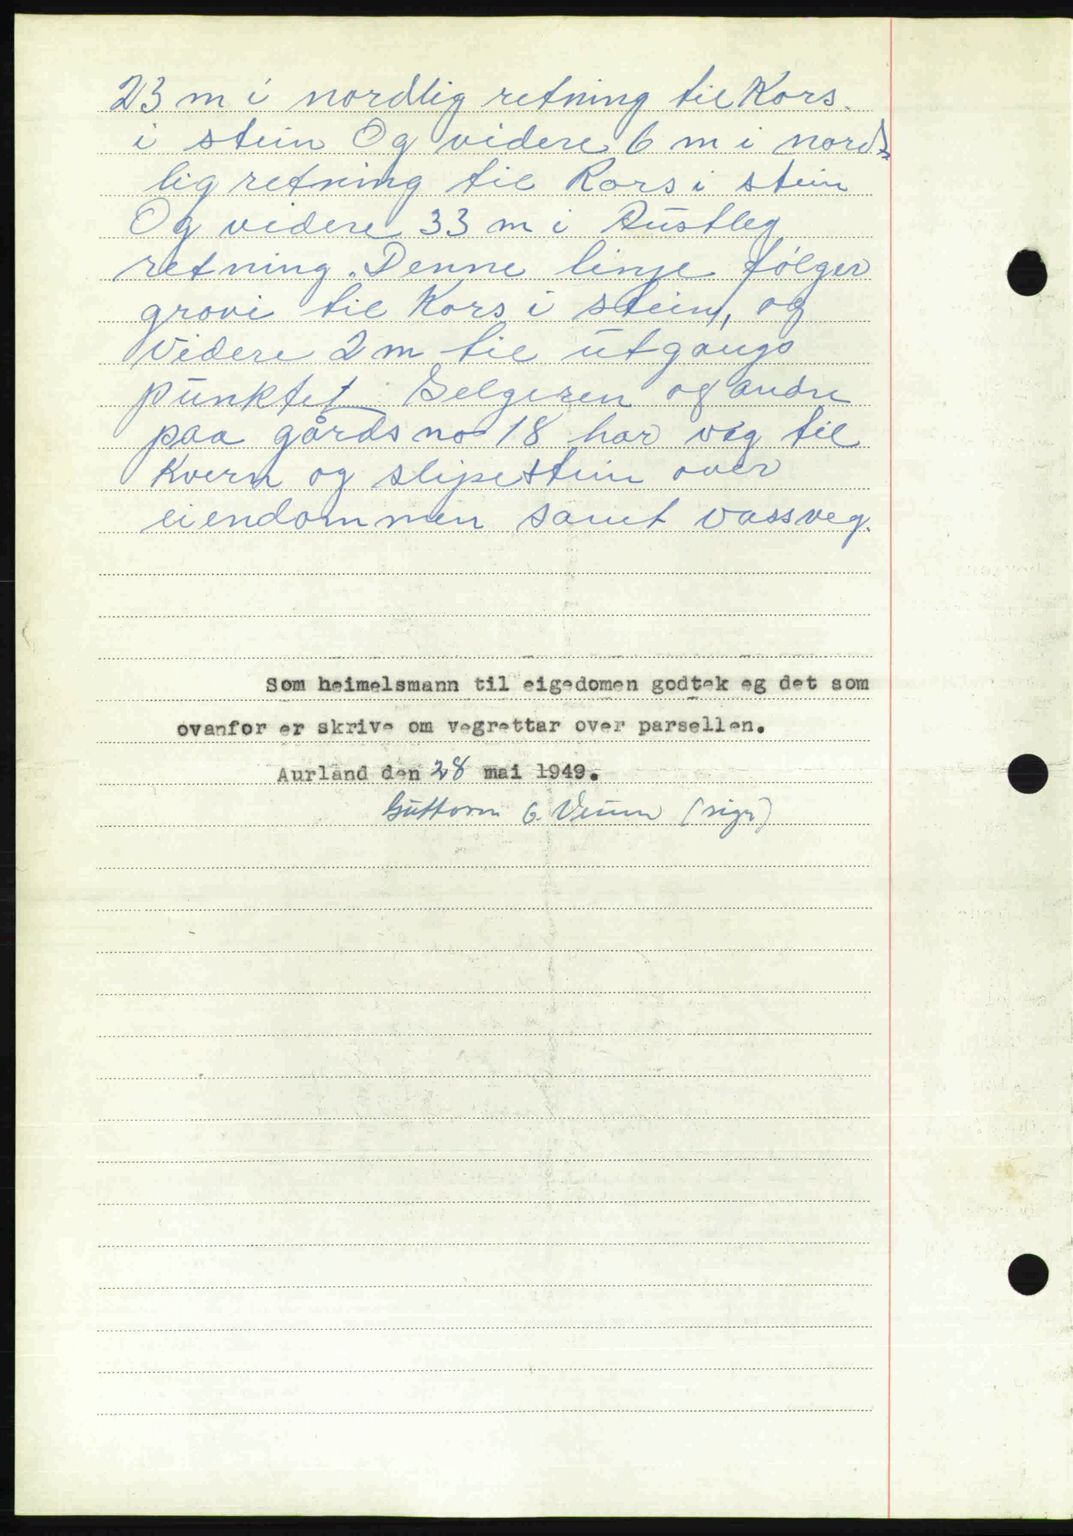 23 m i nordlig retning til Kors
i stein Og videre 6 m i nord-
lig retning til Kors i stein
Og videre 33 m i Austleg
retning. Denne linje følger
grovi til Kors i stein, og
videre 2 m til utgangs
punktet. Selgeren og andre
paa gårds no 18 har veg til
Kvern og slipestein over
eiendommen samt vassveg.
Som heimelsmann til eigedomen godtek eg det som
ovanfor er skrive om vegrettar over parsellen.
Aurland den 28 mai 1949.
Guttorm G. Vinm (sign)